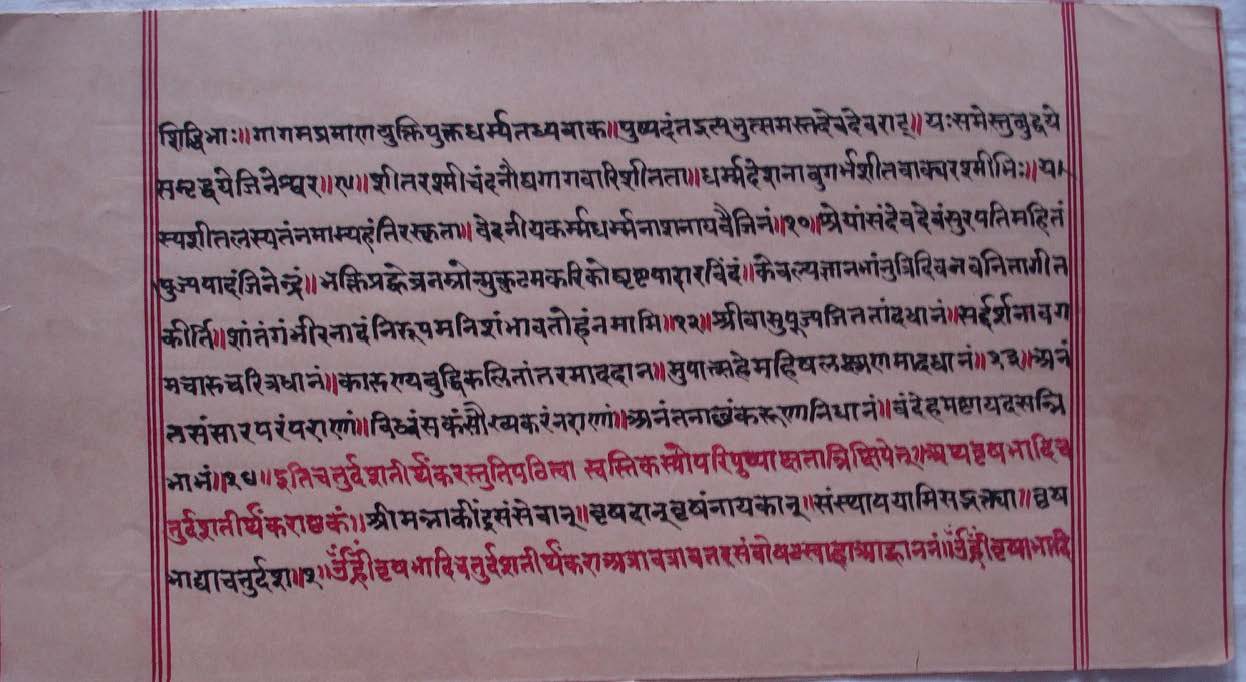 शिद्विभाः॥गागमप्रमाणयुक्तियुक्तधर्म्यतथ्यवाक॥पुष्पदंतइत्यभुत्समस्तदेवदेवराट्॥यःसमेस्तुबुद्धये
समृद्धयेजिनेश्वर॥९॥शीतरश्मीचंदनौघगागवारिशीतता॥धर्म्मदेशनाबुगर्भशीतवाक्यरश्मीभिः॥य
स्यशीतलस्यतंनमाम्यहंतिरस्कृता॥वेदनीयकर्म्मधर्म्मनाशनायवैजिनं॥१०॥श्रेयांसंदेवदेवंसुरपतिमहितं
पुज्यपादंजिनेन्द्रं॥भक्तिप्रह्वेन्द्रनम्रोन्मुकुटमकरिकोघृष्टपादारविंदं॥केवल्यज्ञानभांनुत्रिदिवनवनितागीत
कीर्ति॥शांतंगंभीरनादंनिरूपमनिशंभावतोहंनमामि॥१२॥श्रीवासुपूज्यजिततांदधानं॥सद्दर्शनावग
मचारुचरित्रधानं॥कारुण्यबुद्धिकलितांतरमाददान॥सुपात्महेमहिषलक्ष्मणमादधानं॥१३॥अनं
तसंसारपरंपराणां॥विध्वंसकंसौख्यकरंनराणां॥अनंतनाथंकरुणनिधानं॥वंदेहमष्टापदसन्नि
भाभं॥१४॥इतिचतुर्दशतीर्थंकरस्तुतिपठित्वा स्वस्तिकस्योपरिपुष्पाक्षतान्निक्षिपेत्॥अथवृषभादिच
तुर्दशतीर्थंकराष्टकं॥श्रीमन्नाकींद्रसंसेवान्॥वृषदान्वृषंनायकान्॥संस्थापयामिसद्भक्त्या॥वृष
भाद्याचतुर्दश॥१॥ॐह्रींवृषभादिचतुर्दशतीर्थकराअत्रावत्रावतरसंवोषट्स्वाहाआह्वाननं॥ॐह्रींवृषाभादि